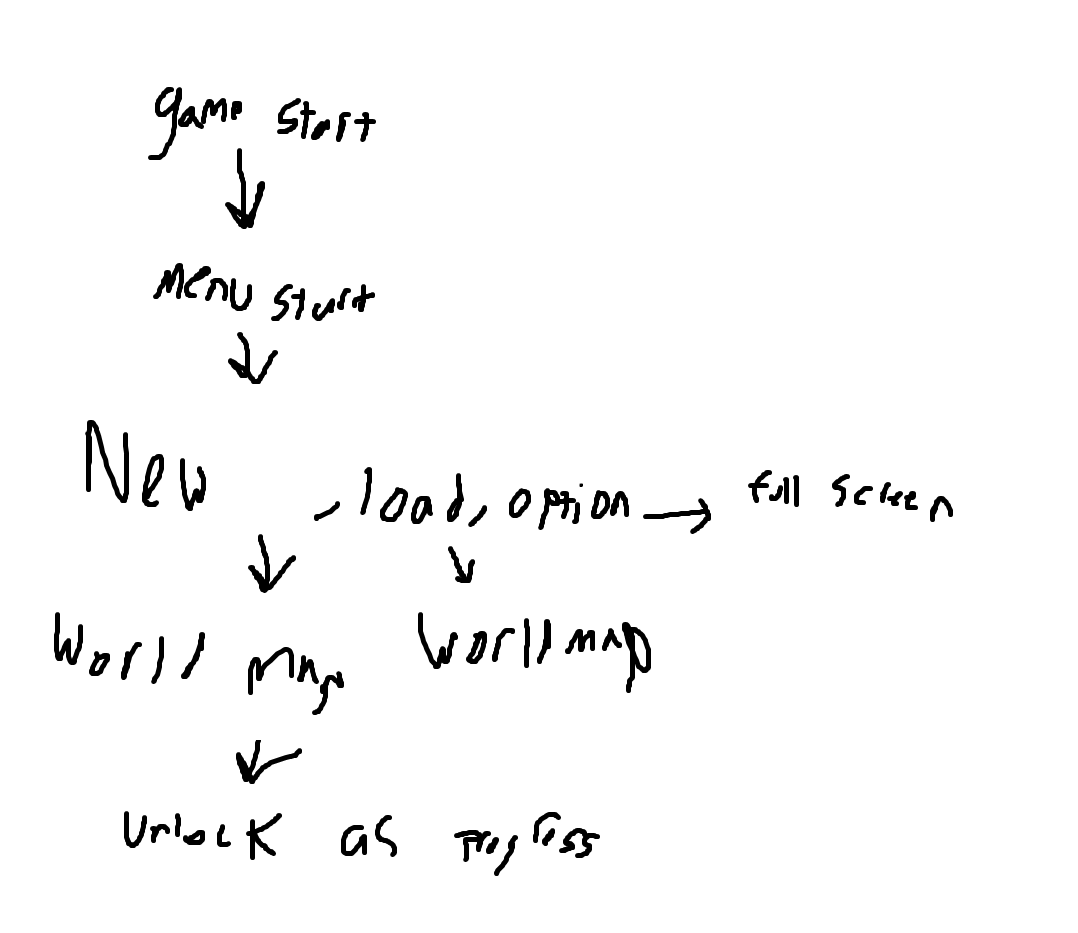 game start
menu start
New, load, option → full screen
World map World map
Unlock as progress